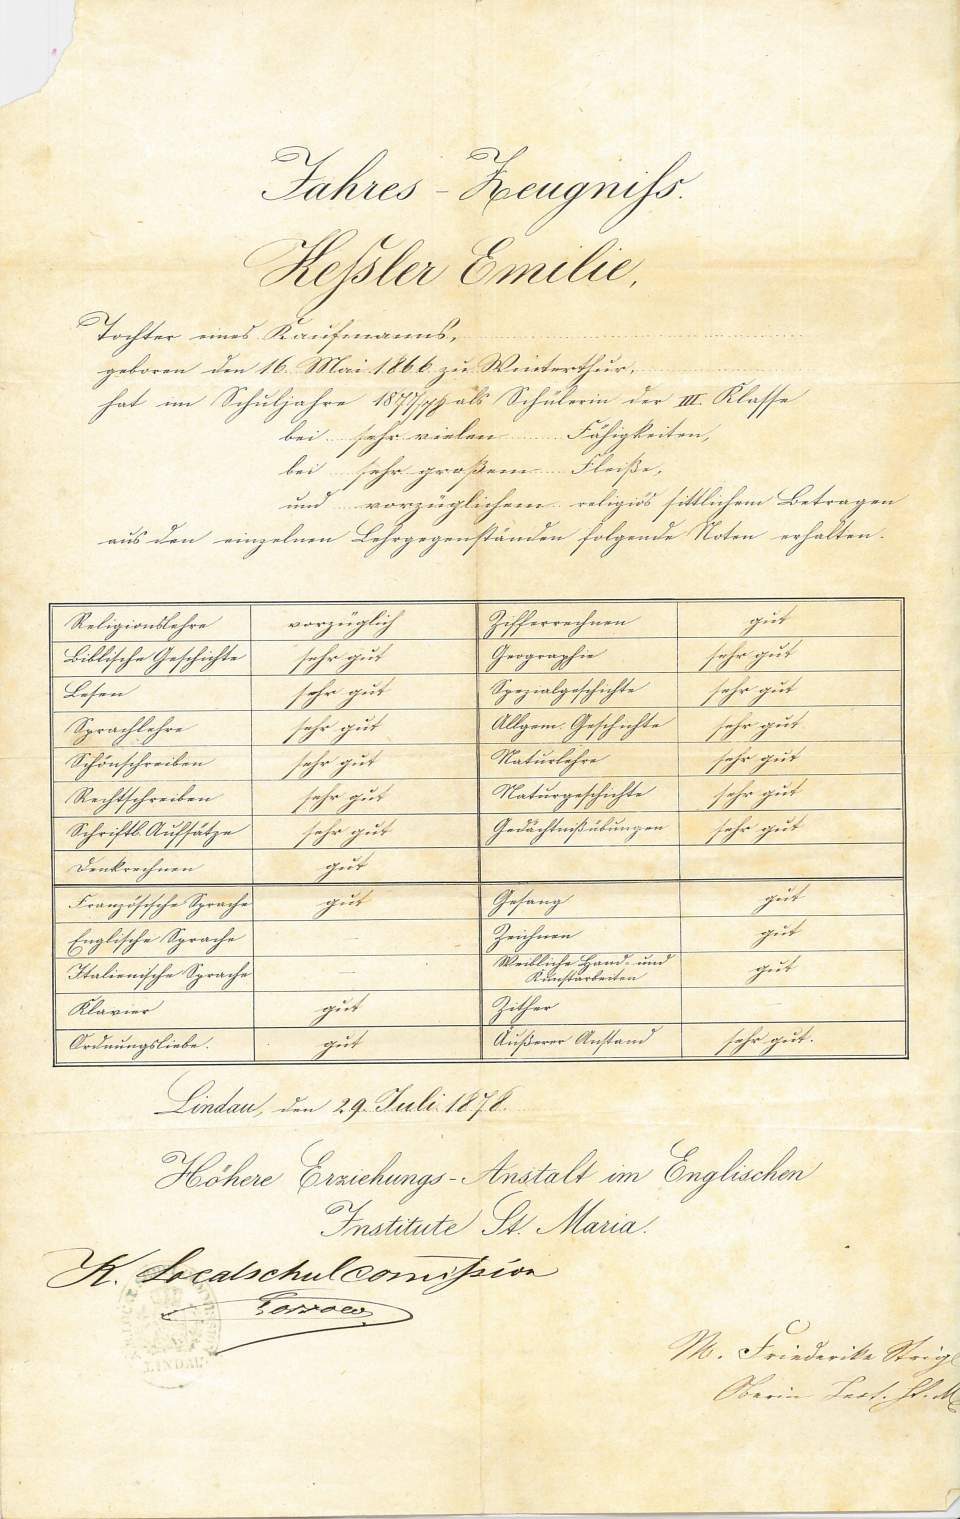 Jahres-Zeugniß.
Keßler Emilie,
Tochter eines Kaufmanns,
geboren den 16. Mai 1866 zu Winterthur,
hat im Schuljahre 1877/78 als Schülerin der III. Klasse
bei sehr vielen Fähigkeiten,
bei sehr großem Fleiße,
und vorzüglichem religiös sittlichem Betragen
aus den einzelnen Lehrgegenständen folgende Noten erhalten.
Religionslehre vorzüglich Zifferrechnen gut
Biblische Geschichte sehr gut Geographie sehr gut
Lesen sehr gut Spezialgeschichte sehr gut
Sprachlehre sehr gut Allgem. Geschichte sehr gut
Schönschreiben sehr gut Naturlehre sehr gut
Rechtschreiben sehr gut Naturgeschichte sehr gut
Schriftl. Aufsätze sehr gut Gedächtnißübungen sehr gut
Denkrechnen gut
Französische Sprache gut Gesang gut
Englische Sprache — Zeichnen gut
Italienische Sprache — Weibliche Hand- und Kunstarbeiten gut
Klavier gut Zither —
Ordnungsliebe. gut Äußerer Anstand sehr gut.
Lindau, den 29. Juli 1878.
Höhere Erziehungs-Anstalt im Englischen
Institute St. Maria.
K. Localschulcomission
LINDAU
M. Friederike
Oberin Inst. St. M